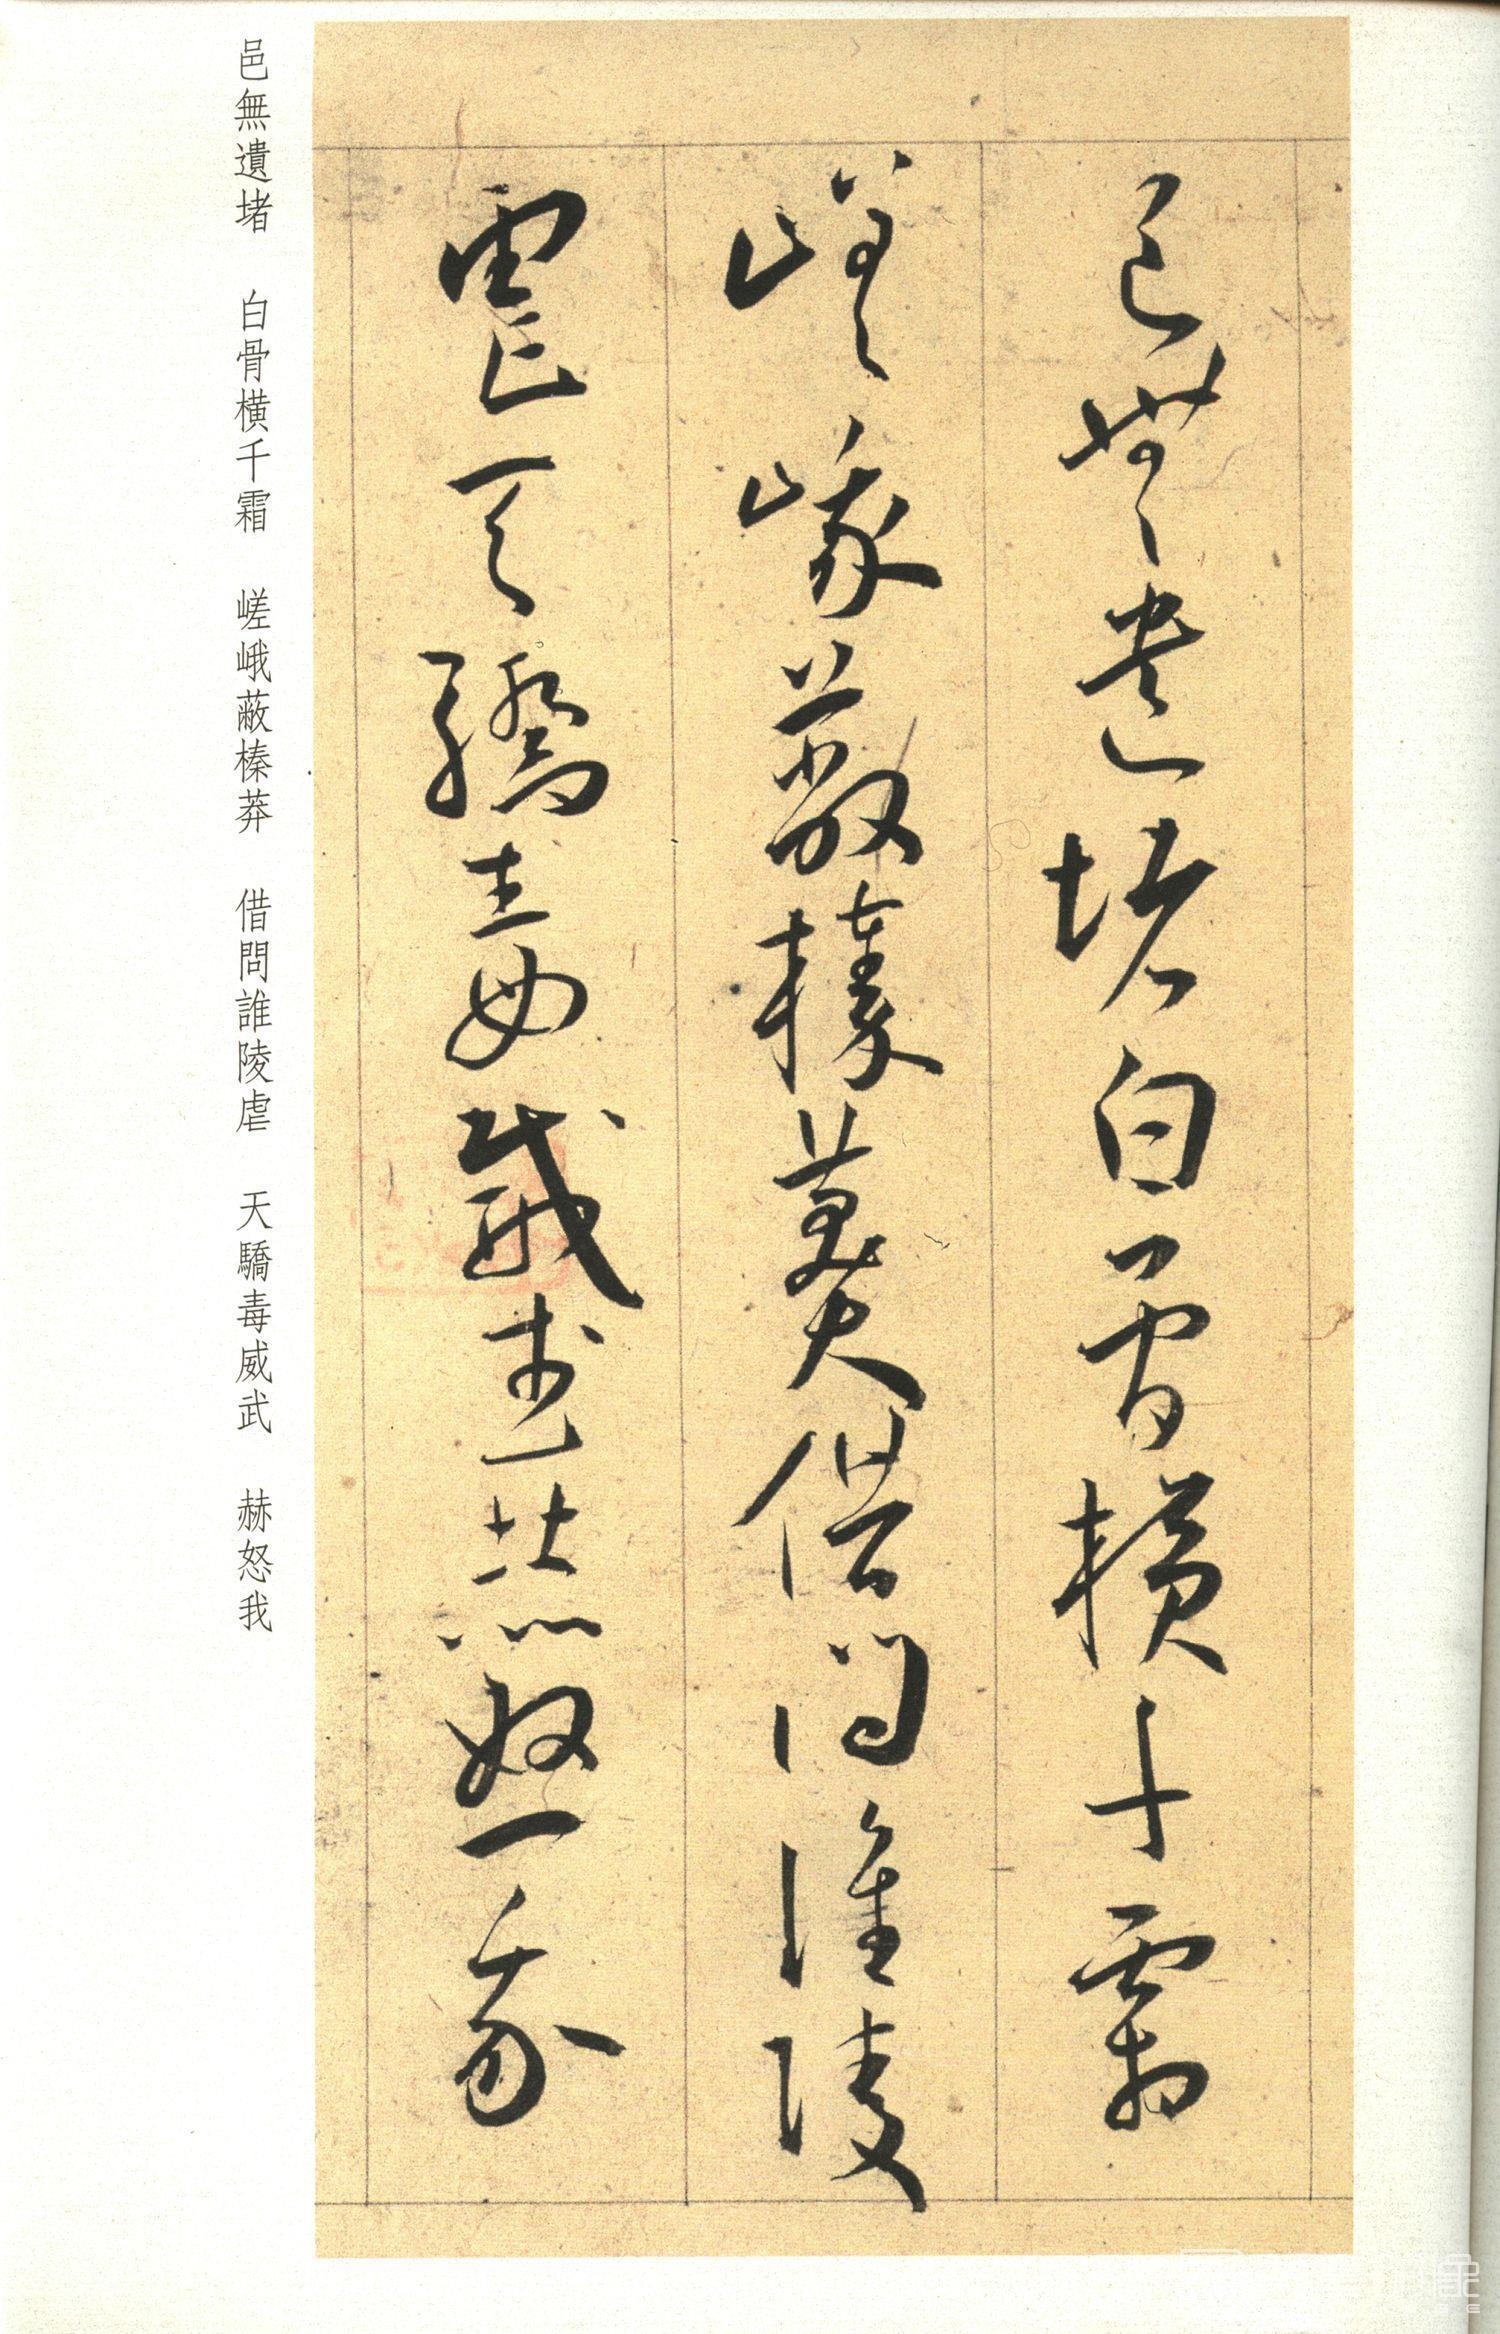 邑無遺堵白骨橫千霜
嵯峨蔽榛莽借問誰陵
虐天驕毒威武赫怒我
邑無遺堵　白骨橫千霜　嵯峨蔽榛莽　借問誰陵虐　天驕毒威武　赫怒我